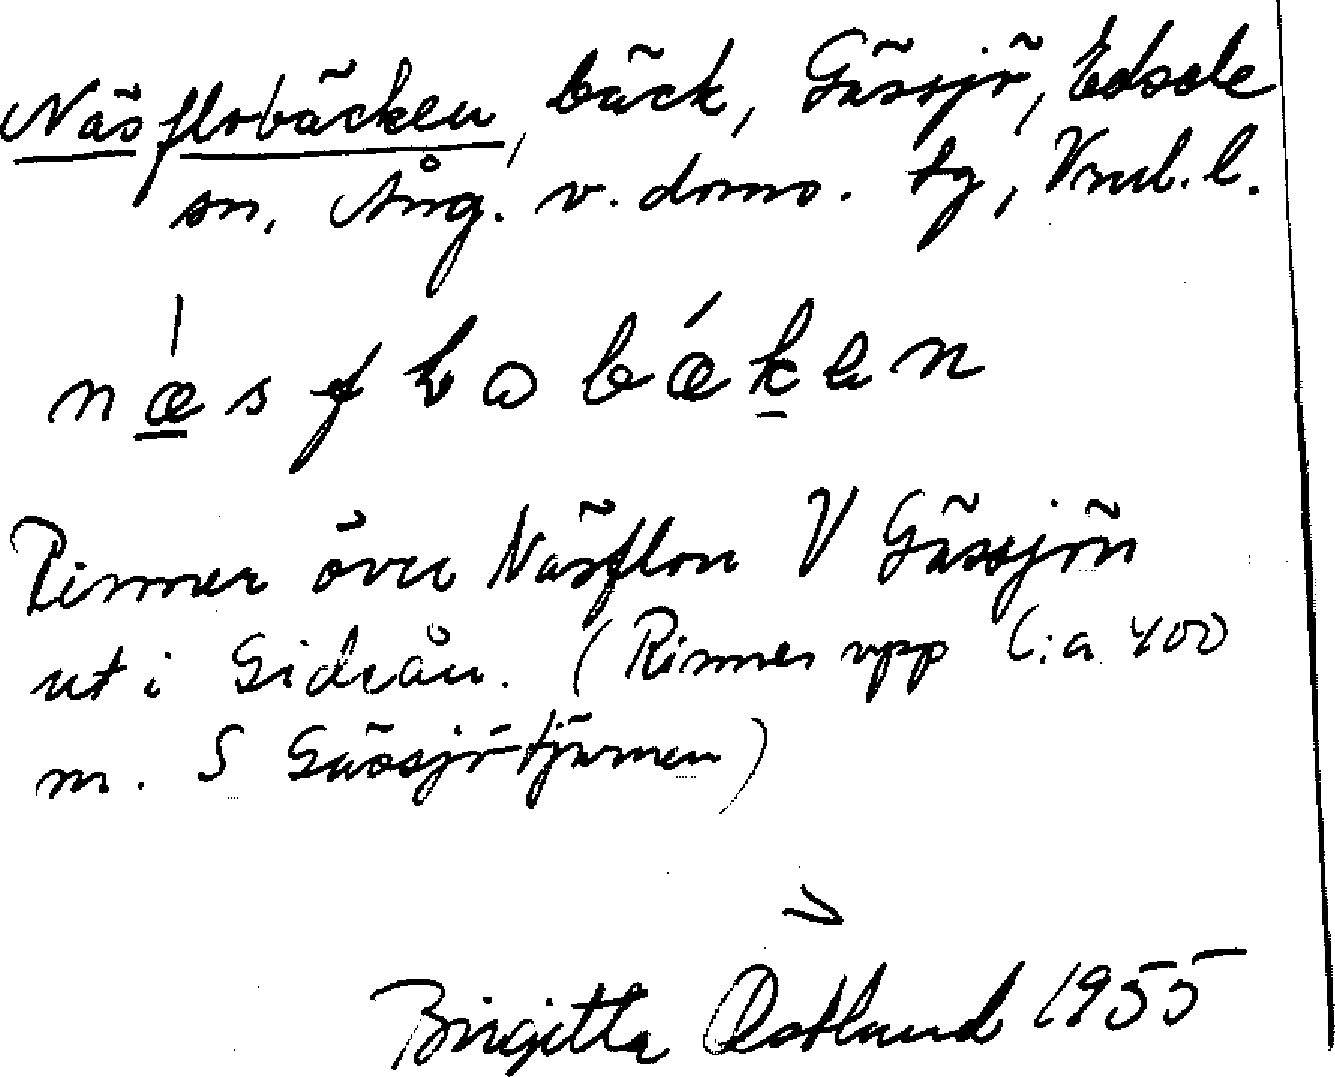 Näsflobäcken, bäck, Gässjö, Edsele
sn, Ång. v. doms. tg, Vnl. l.
næsflobækan
Rinner över Näsflon V Gässjön
ut i Gideån. (Rinner upp C:a 400
m. S Gässjötjärnen)
Birgitta Östlund 1955